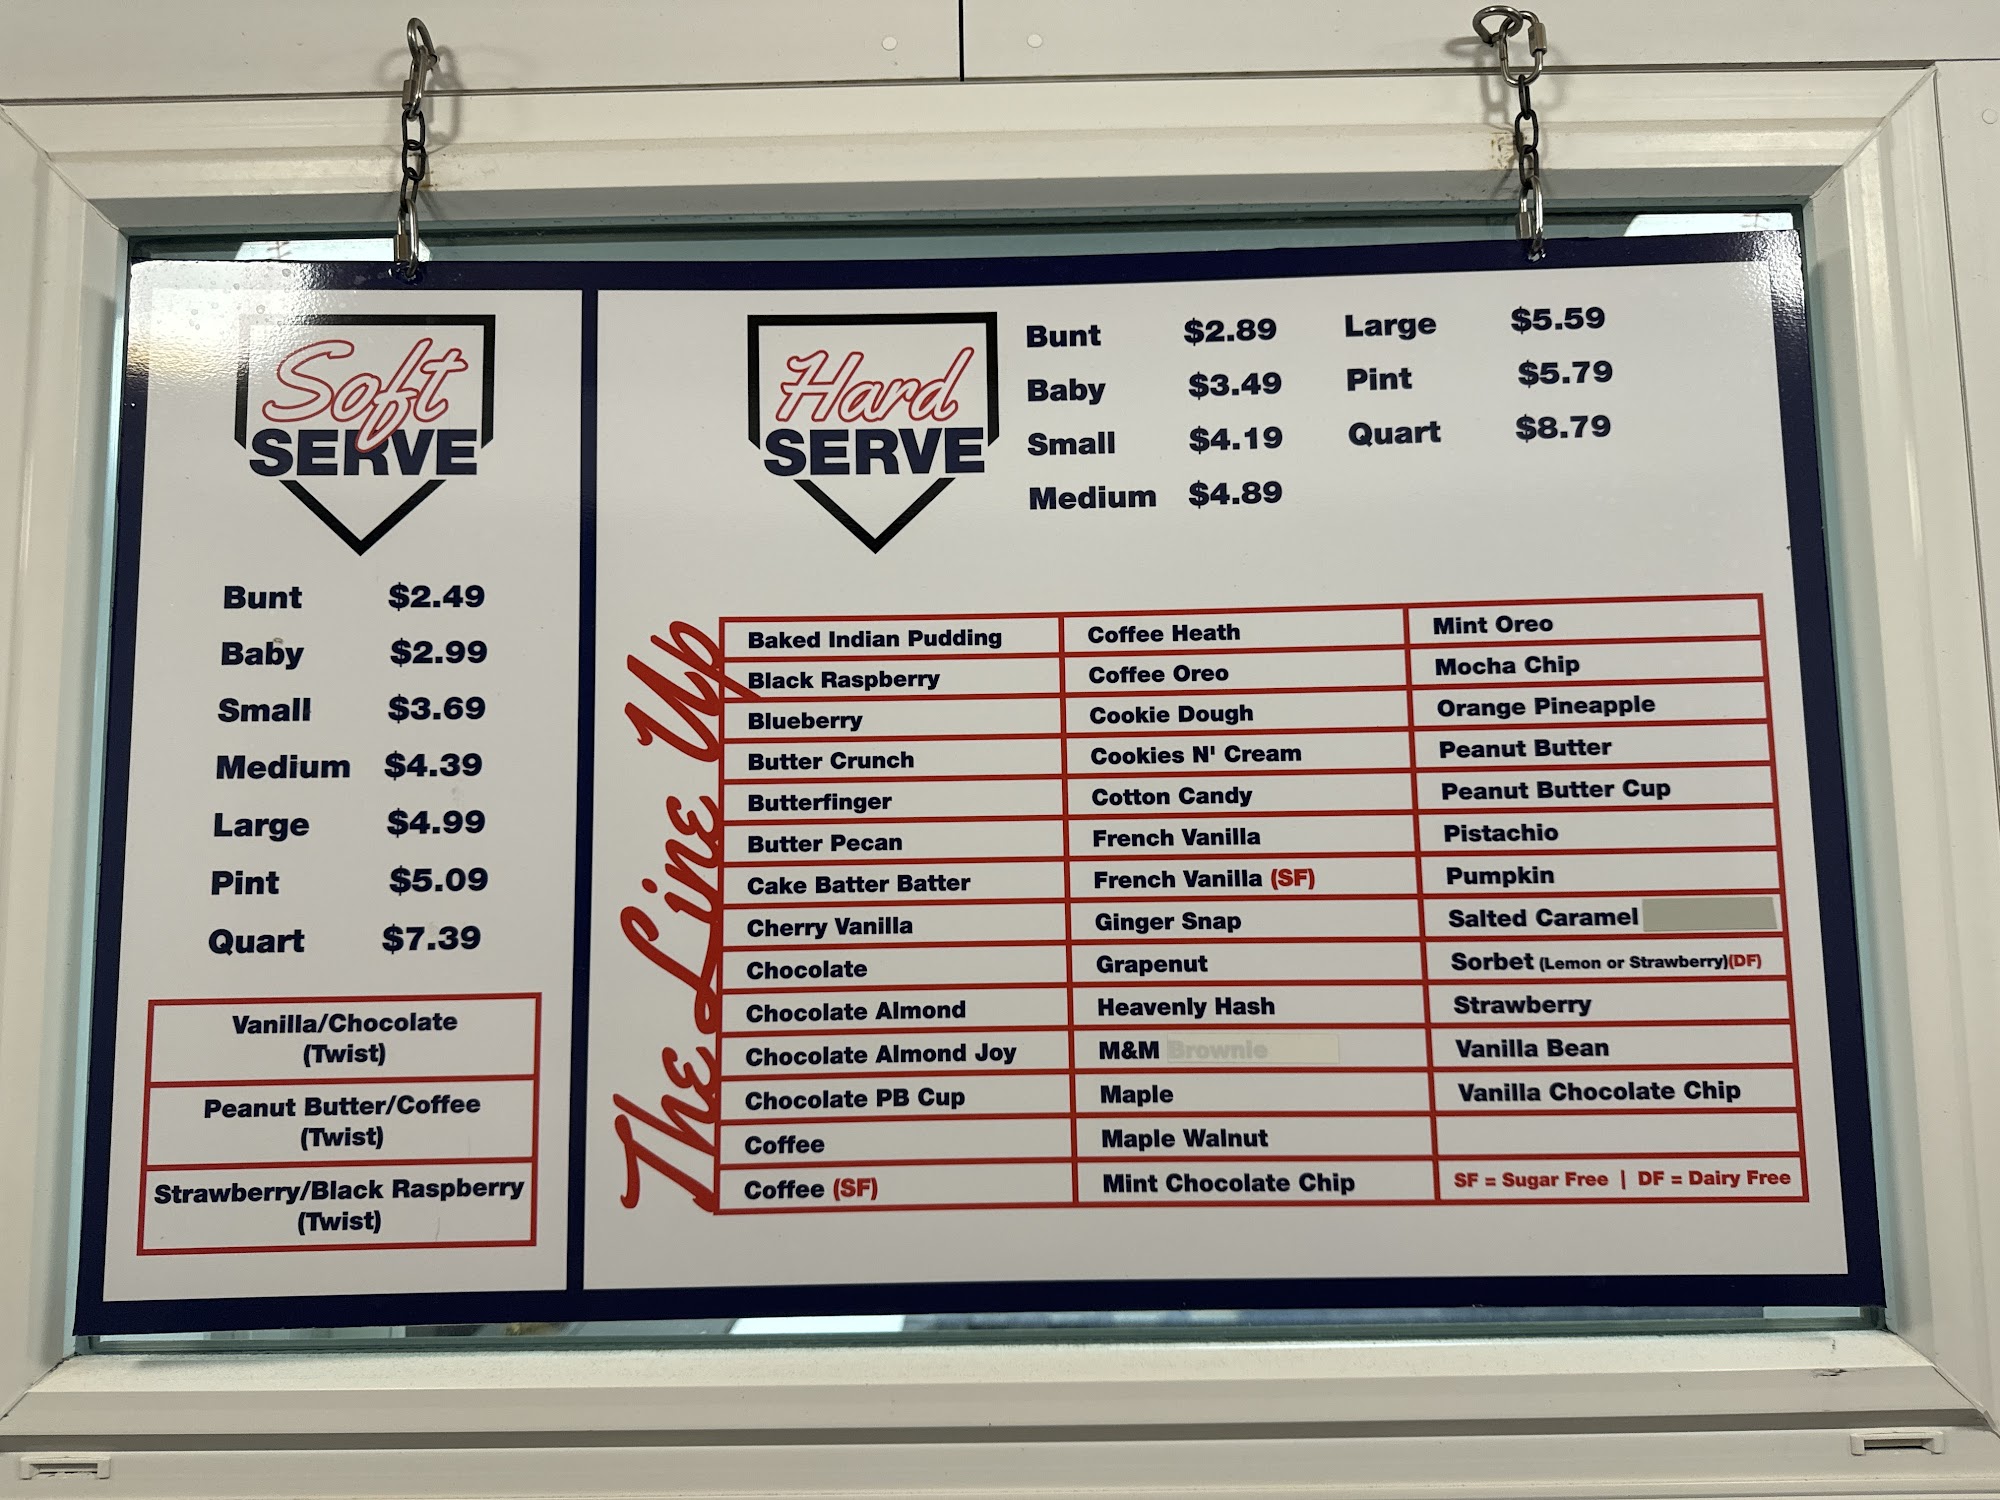 Soft
SERVE
Bunt $2.49
Baby $2.99
Small $3.69
Medium $4.39
Large $4.99
Pint $5.09
Quart $7.39
Vanilla/Chocolate
(Twist)
Peanut Butter/Coffee
(Twist)
Strawberry/Black Raspberry
(Twist)
Hard
SERVE
Bunt $2.89
Baby $3.49
Small $4.19
Medium $4.89
Large $5.59
Pint $5.79
Quart $8.79
The Line Up
Baked Indian Pudding
Black Raspberry
Blueberry
Butter Crunch
Butterfinger
Butter Pecan
Cake Batter Batter
Cherry Vanilla
Chocolate
Chocolate Almond
Chocolate Almond Joy
Chocolate PB Cup
Coffee
Coffee (SF)
Coffee Heath
Coffee Oreo
Cookie Dough
Cookies N' Cream
Cotton Candy
French Vanilla
French Vanilla (SF)
Ginger Snap
Grapenut
Heavenly Hash
M&M Brownie
Maple
Maple Walnut
Mint Chocolate Chip
Mint Oreo
Mocha Chip
Orange Pineapple
Peanut Butter
Peanut Butter Cup
Pistachio
Pumpkin
Salted Caramel
Sorbet (Lemon or Strawberry)(DF)
Strawberry
Vanilla Bean
Vanilla Chocolate Chip
SF = Sugar Free | DF = Dairy Free